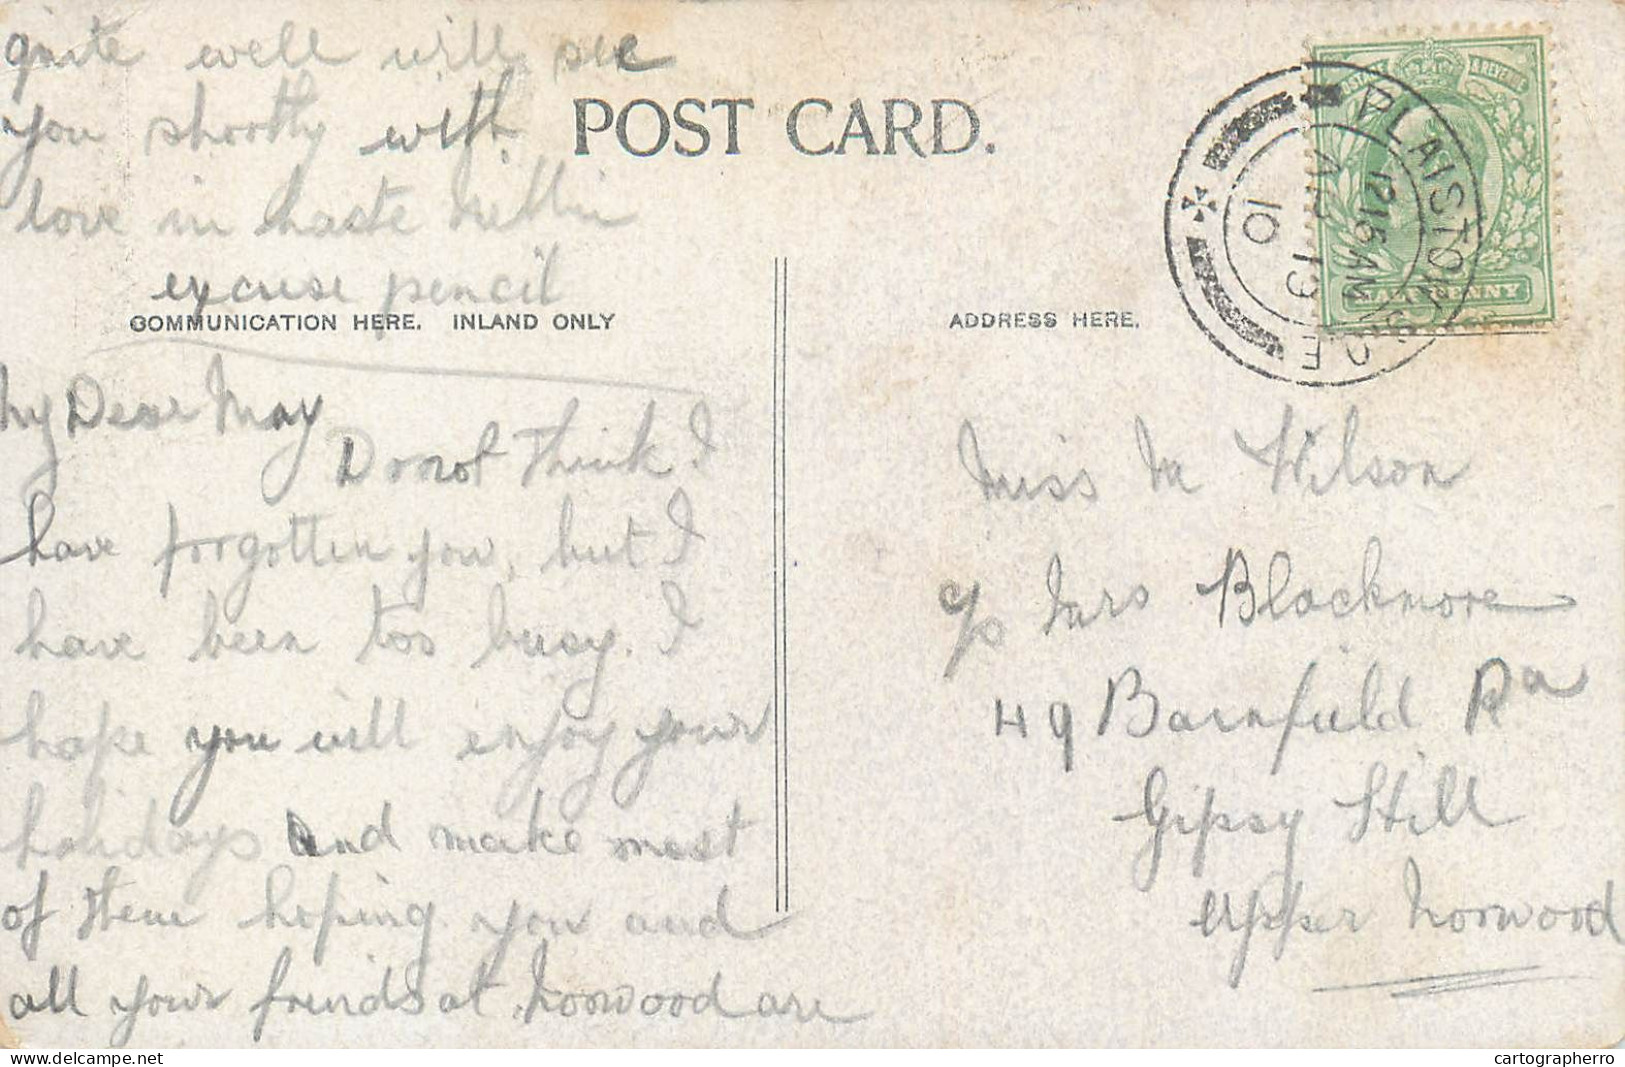 quite well will see
you shortly with
love in haste Nellie
excuse pencil
POST CARD.
COMMUNICATION HERE. INLAND ONLY
ADDRESS HERE.
PLAISTOW
1215 AM
19
10
HALFPENNY
My Dear May
Do not think I
have forgotten you, but I
have been too busy. I
hope you will enjoy your
holidays and make most
of them hoping you and
all your friends at Norwood are
Miss M Wilson
c/o Mrs Blackmore
49 Barnfield Rd
Gipsy Hill
Upper Norwood
cartographerro